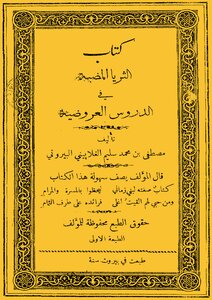 كتاب
الثريا المضية
في
الدروس العروضية
تأليف
مصطفى بن محمد سليم الغلاييني البيروتي
قال المؤلف يصف سهولة هذا الكتاب
كتاب صغته لبني زماني ليحظوا بالمسرة والمرام
ومن حبي لهم القيت اغلى فرائده على طرف الثمام
حقوق الطبع محفوظة للمؤلف
الطبعة الاولى
طبعت في بيروت سنة